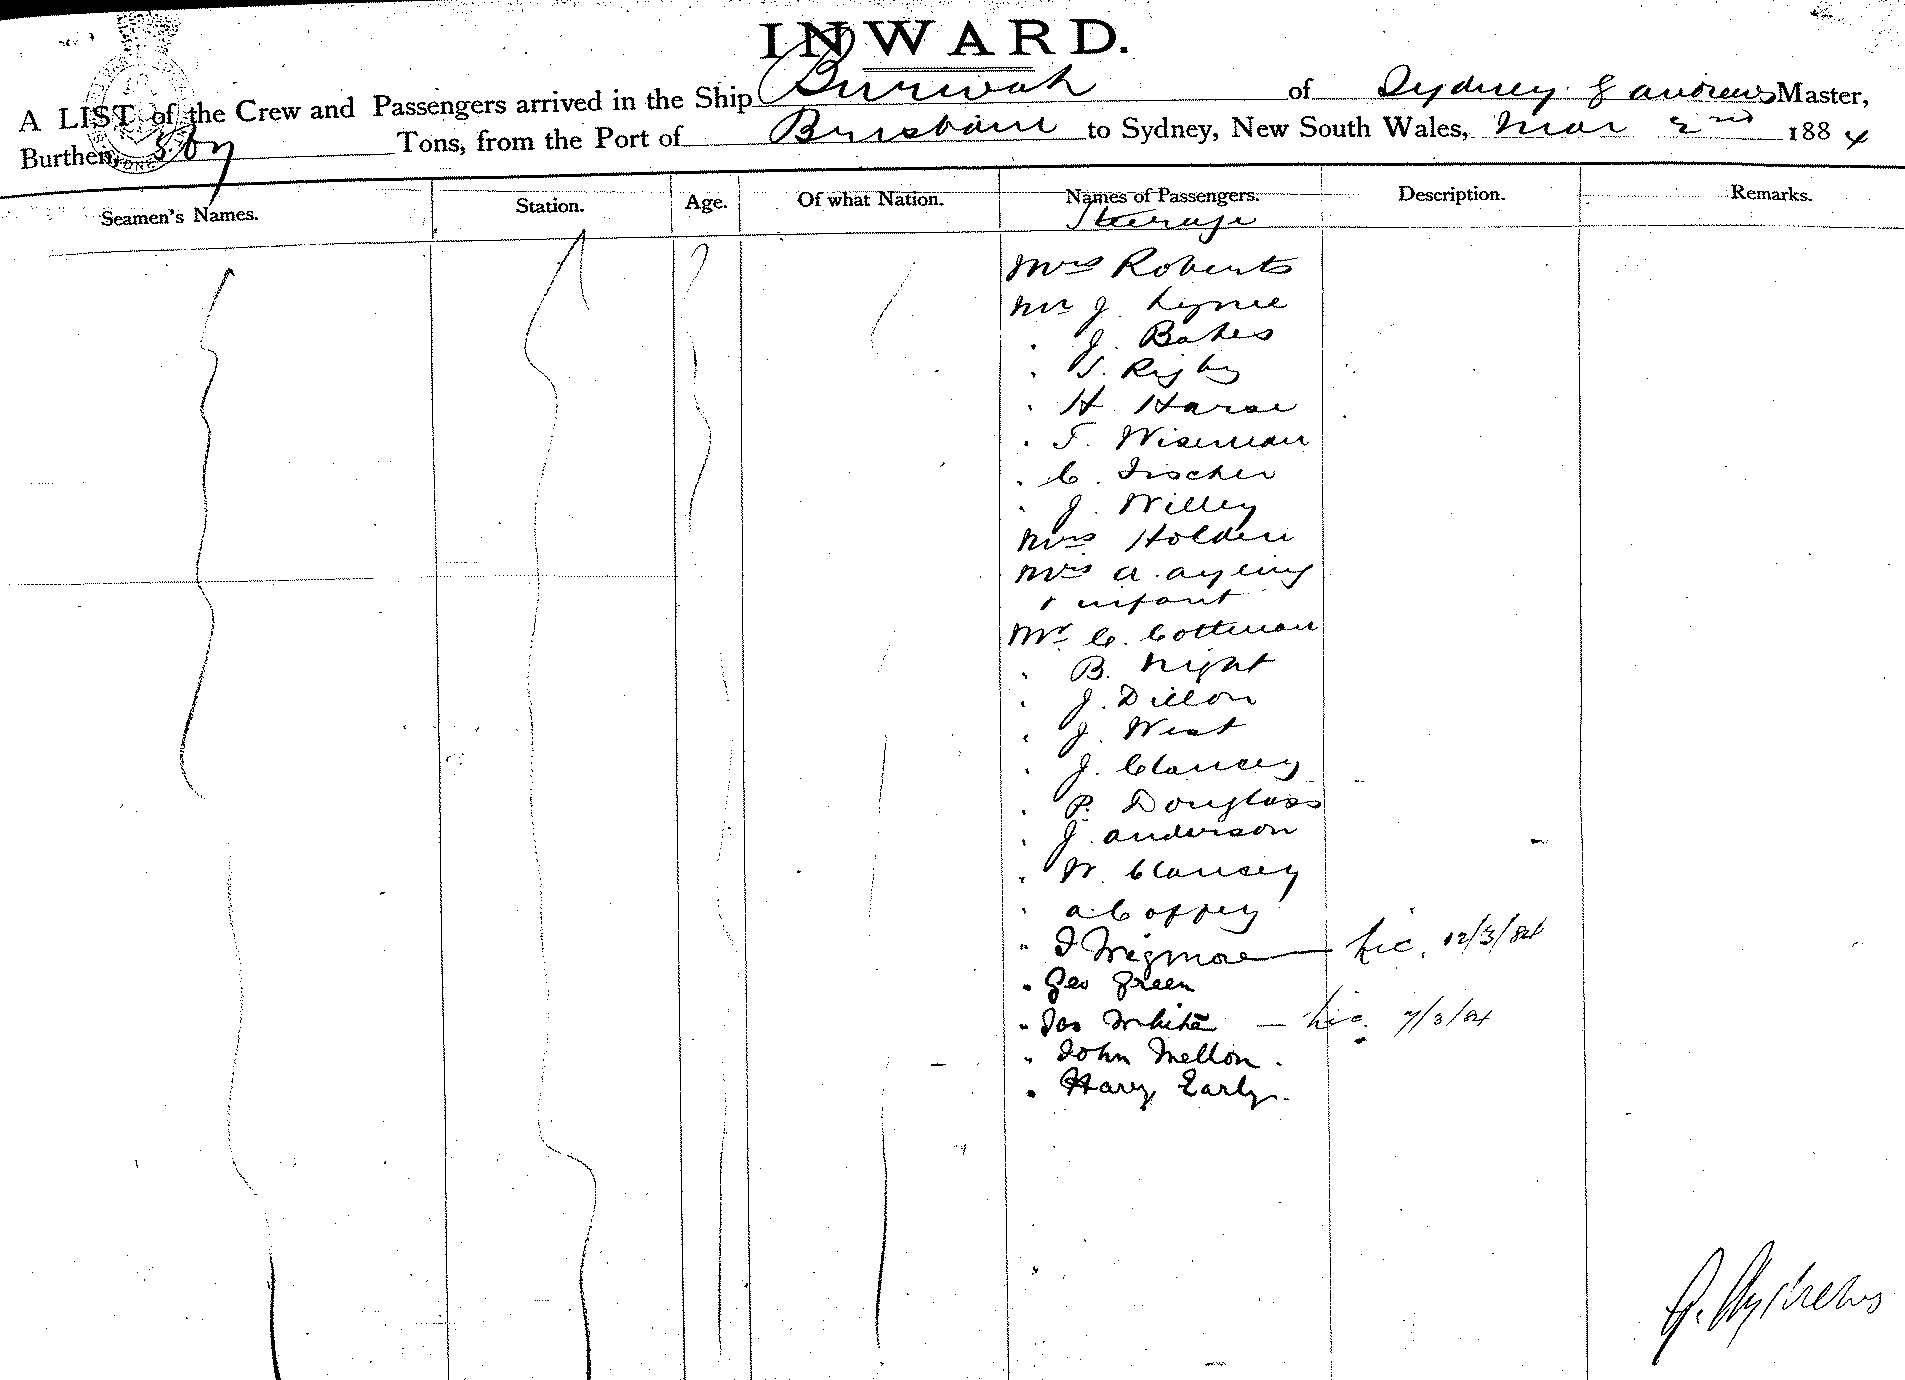 INWARD.
A LIST of the Crew and Passengers arrived in the Ship Burwah of Sydney G andrews Master,
Burthen, Tons, from the Port of Brisbane to Sydney, New South Wales, Mar 2nd 1884
Seamen's Names. Station. Age. Of what Nation. Names of Passengers. Description. Remarks.
Steerage
Mrs Roberts
Mr J. Lynne
" J. Bakes
" S. Rigby
" H
" T. Wiseman
" C. Fischer
" J. Willey
Mrs Holden
Mrs A. Ayling
& infant
Mr C. Cottman
" B. Night
" J. Dillon
" J. West
" J. Clancey
" P. Douglass
" J. anderson
" W. Clancey
" a. Coffey
" Wigmore — Lic. 12/3/84
" Geo Green
" Jas White — Lic. 7/3/84
" John Mellon.
" Harry Early.
G. Andrews